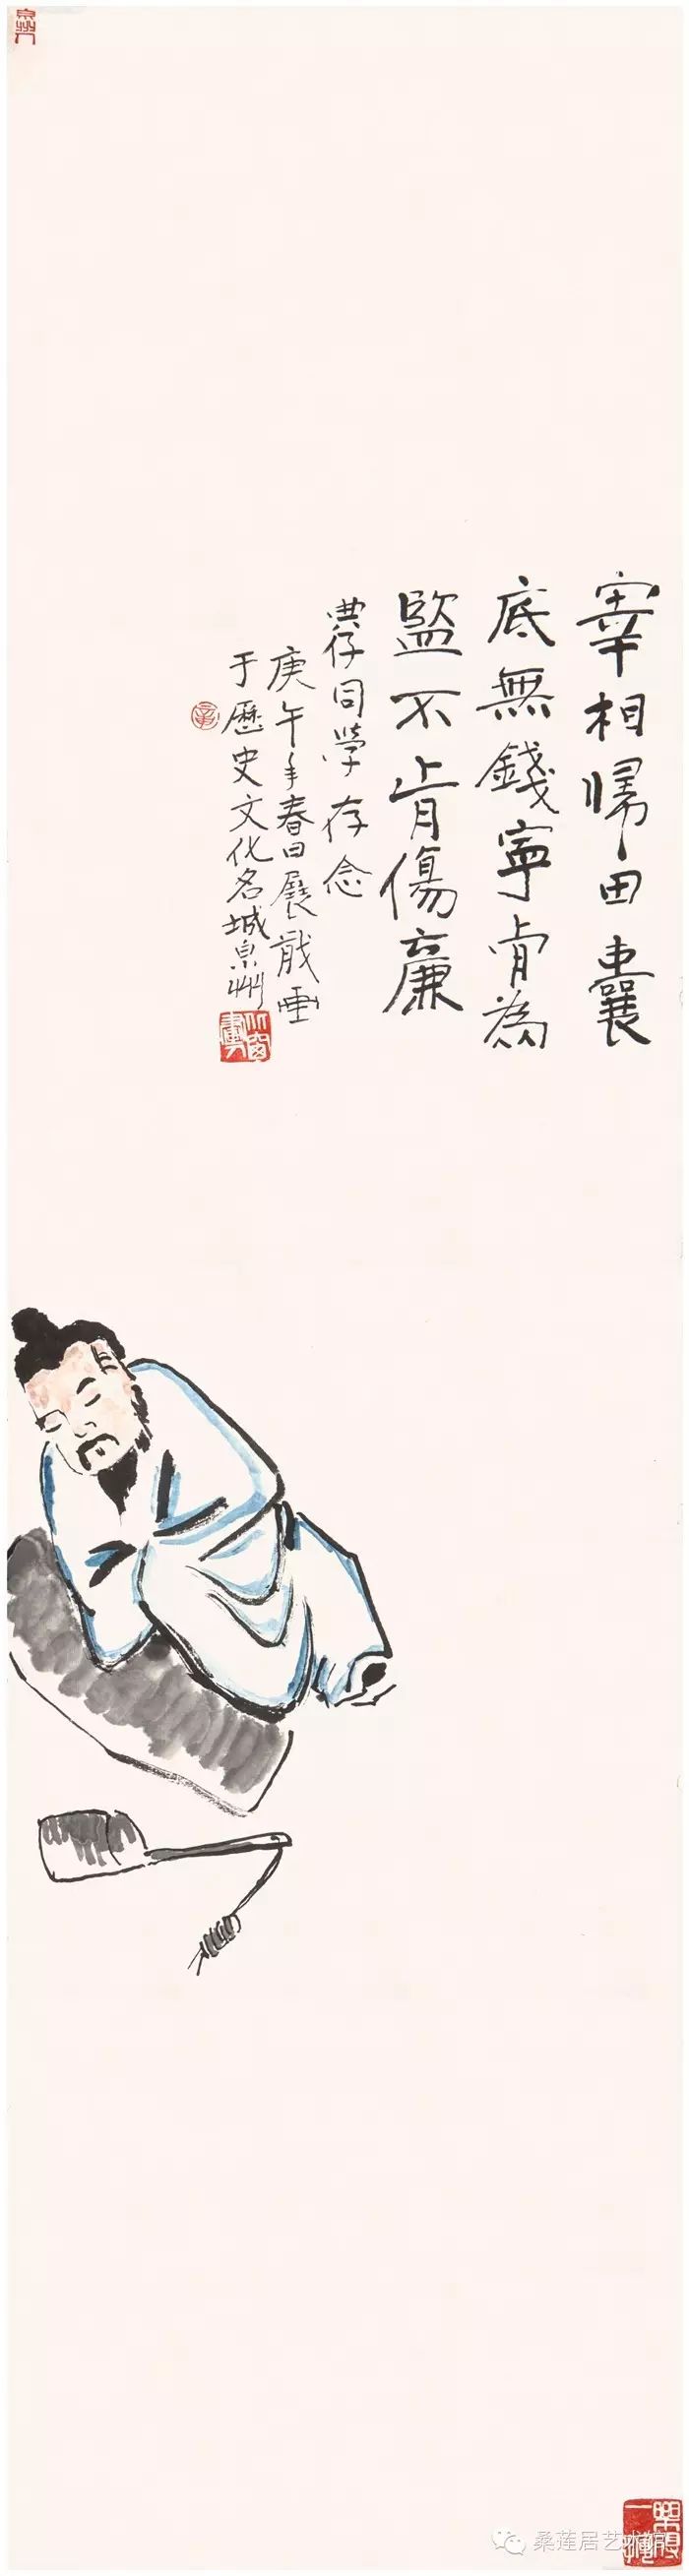 泉州人
宰相帰田囊
底無錢寧肯為
盜不肯傷廉
存同學存念
庚午年春日展戢画
于歷史文化名城泉州
桑莲居艺术馆